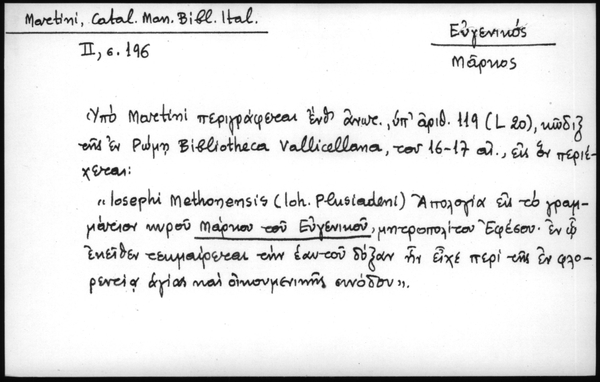 Martini, Catal. Man. Bibl. Ital.
II, σ. 196
Εὐγενικός
Μᾶρκος
Ὑπὸ Martini περιγράφεται ἔνθ' ἀνωτ., ὑπ' ἀριθ. 119 (L 20), κῶδιξ
τῆς ἐν Ρώμῃ Bibliotheca Vallicellana, του 16-17 αἰ., εἰς ὃν περιέ-
χεται:
"Iosephi Methonensis (Ioh. Plusiadeni) Ἀπολογία εἰς τὸ γραμ-
μάτιον κυροῦ Μάρκου τοῦ Εὐγενικοῦ, μητροπολίτου Ἐφέσου· ἐν ᾧ
ἐκεῖθεν τεκμαίρεται τὴν ἑαυτοῦ δόξαν ἣν εἶχε περὶ τῆς ἐν φλο-
ρεντίᾳ ἁγίας καὶ οἰκουμενικῆς συνόδου".